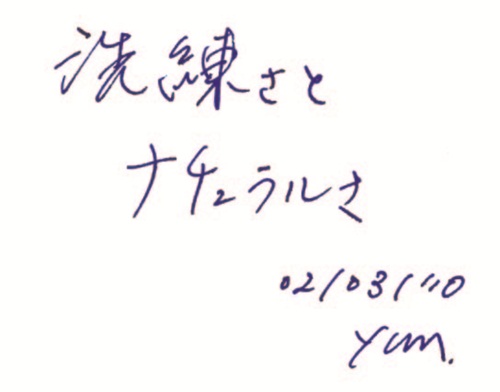 洗練さと
ナチュラルさ
02/03/10
Yum.